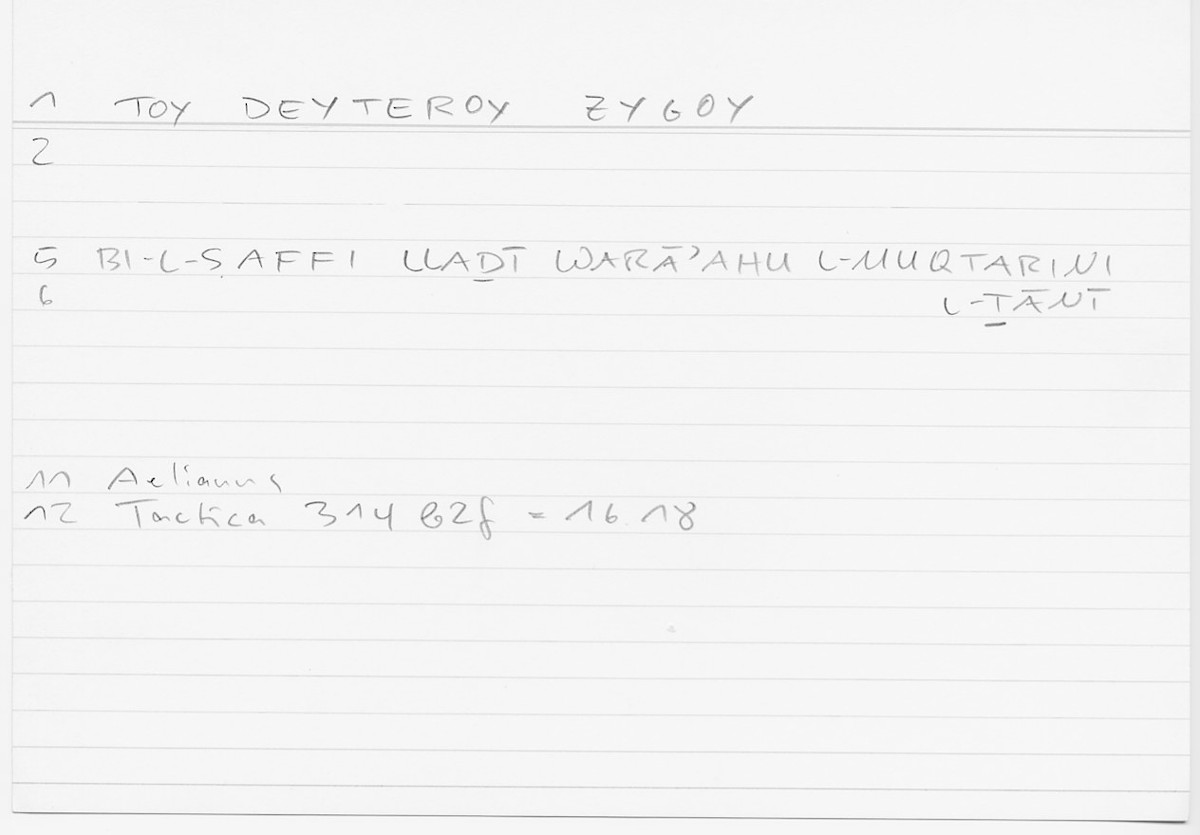 1 TOY DEYTEROY ZYGOY
2
5 BI-L-ṢAFFI LLAḎĪ WARĀʾAHU L-MUQTARINI
6 L-ṮĀNĪ
11 Aelianus
12 Tactica 314 b2f = 16.18